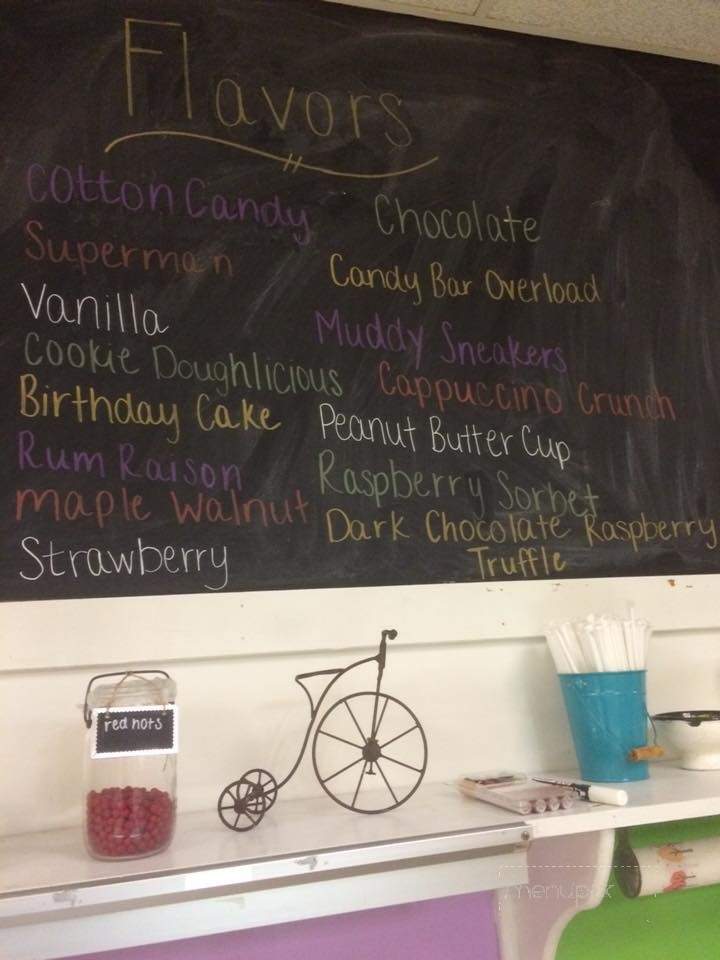 Flavors
Cotton Candy
Superman
Vanilla
Cookie Doughlicious
Birthday Cake
Rum Raison
maple walnut
Strawberry
Chocolate
Candy Bar Overload
Muddy Sneakers
Cappuccino Crunch
Peanut Butter Cup
Raspberry Sorbet
Dark Chocolate Raspberry
Truffle
red hots
menupix